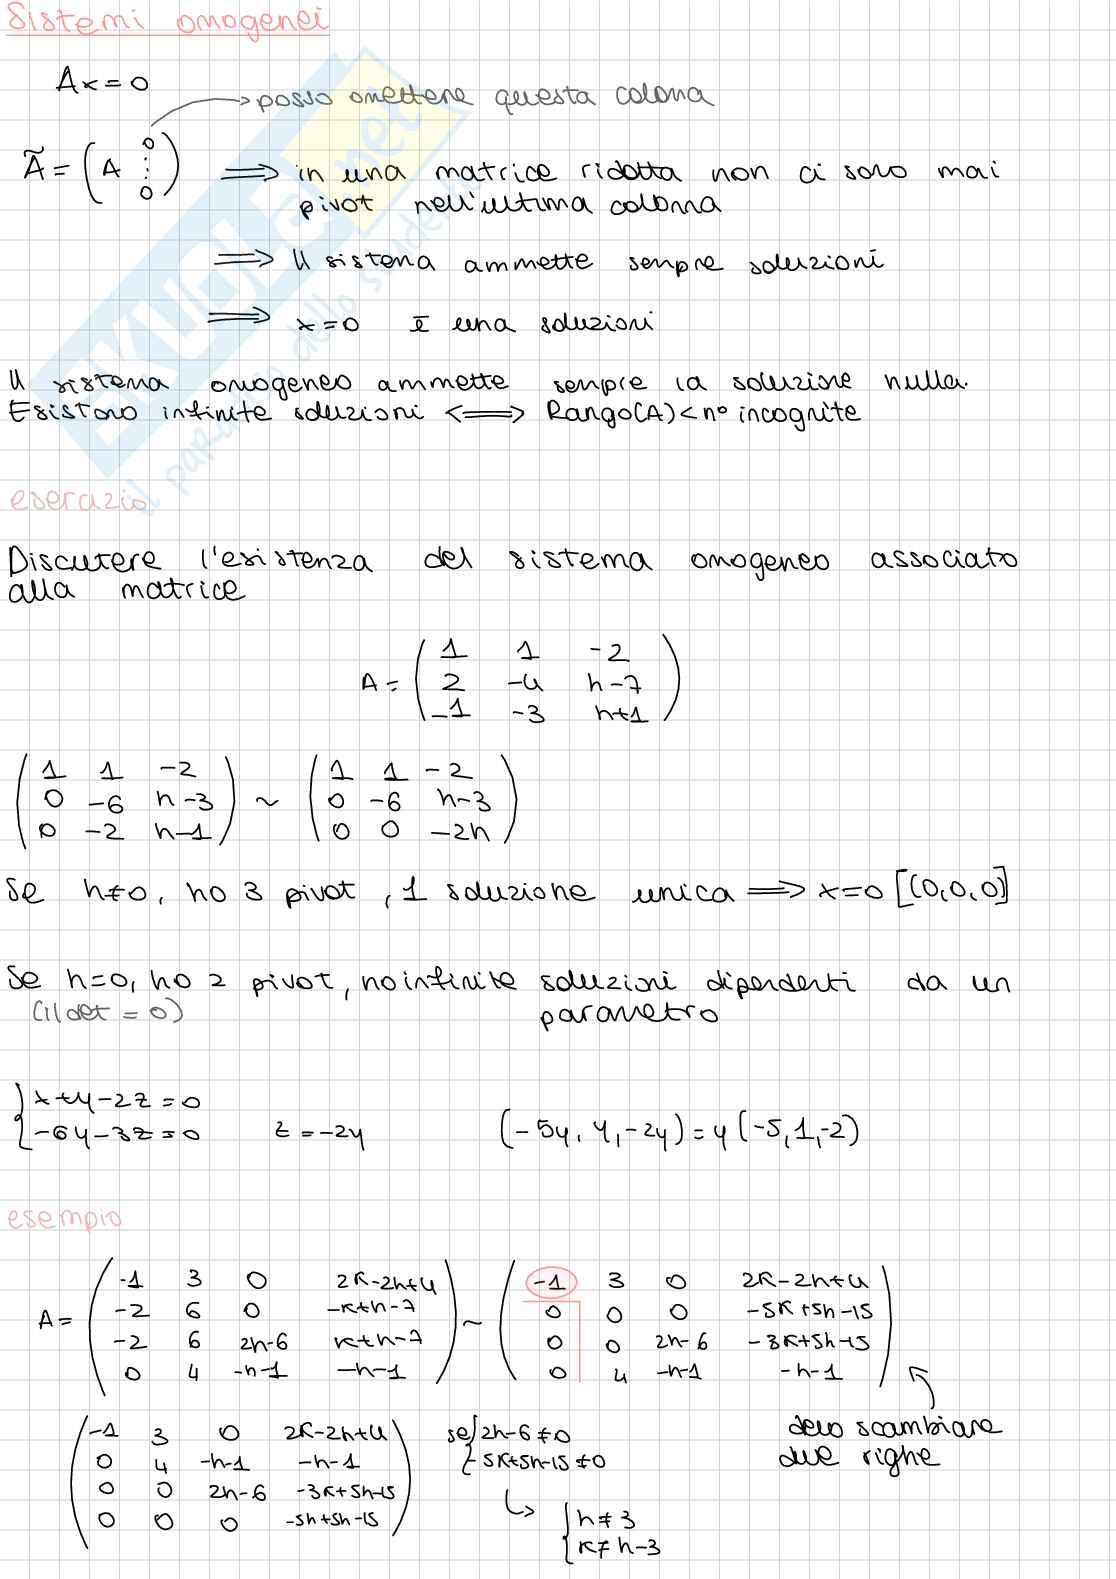 Sistemi omogenei
Ax = 0
→ posso omettere questa colonna
Ã = (A 0 ⋮ 0) ⟹ in una matrice ridotta non ci sono mai
pivot nell'ultima colonna
⟹ Il sistema ammette sempre soluzioni
⟹ x = 0 È una soluzioni
Il sistema omogeneo ammette sempre la soluzione nulla.
Esistono infinite soluzioni ⟺ Rango(A) < n° incognite
esercizio
Discutere l'esistenza del sistema omogeneo associato
alla matrice
1 1 -2
A = 2 -4 h-7
-1 -3 h+1
1 1 -2 1 1 -2
0 -6 h-3 ~ 0 -6 h-3
0 -2 h-1 0 0 -2h
Se h≠0, ho 3 pivot, 1 soluzione unica ⟹ x=0 [(0,0,0)]
Se h=0, ho 2 pivot, ho infinite soluzioni dipendenti da un
(il det = 0) parametro
{x+y-2z=0
-6y-3z=0 z=-2y (-5y, y, -2y) = y(-5,1,-2)
esempio
-1 3 0 2k-2h+4 -1 3 0 2k-2h+4
A = -2 6 0 -k+h-7 ~ 0 0 0 -5k+5h-15
-2 6 2h-6 k+h-7 0 0 2h-6 -3k+5h-15
0 4 -h-1 -h-1 0 4 -h-1 -h-1
devo scambiare
due righe
-1 3 0 2k-2h+4 se {2h-6≠0
0 4 -h-1 -h-1 -5k+5h-15≠0
0 0 2h-6 -3k+5h-15
0 0 0 -5h+5h-15
↳ {h≠3
k≠h-3
SKUOLA.net
il paradiso dello studente